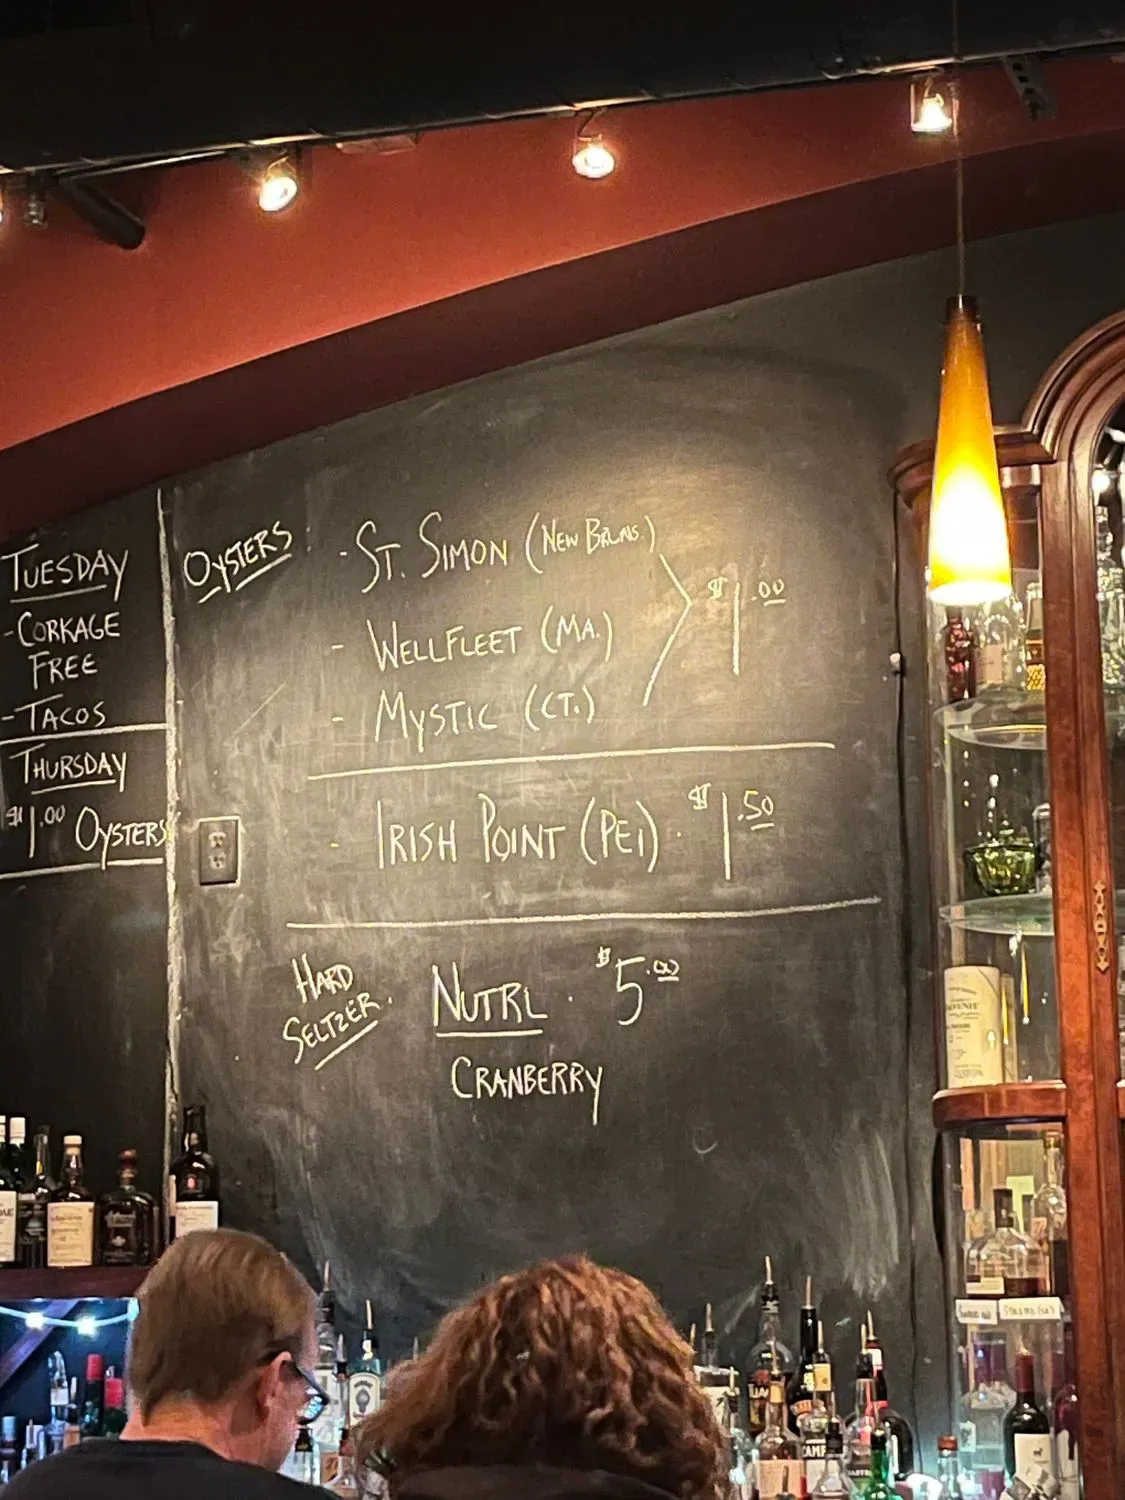 TUESDAY
- CORKAGE
FREE
- TACOS
THURSDAY
$1.00 OYSTERS
OYSTERS
- ST. SIMON (NEW BRUNS.)
- WELLFLEET (MA.)
- MYSTIC (CT.)
$1.00
- IRISH POINT (PEI) . $1.50
HARD
SELTZER.
NUTRL . $5.00
CRANBERRY